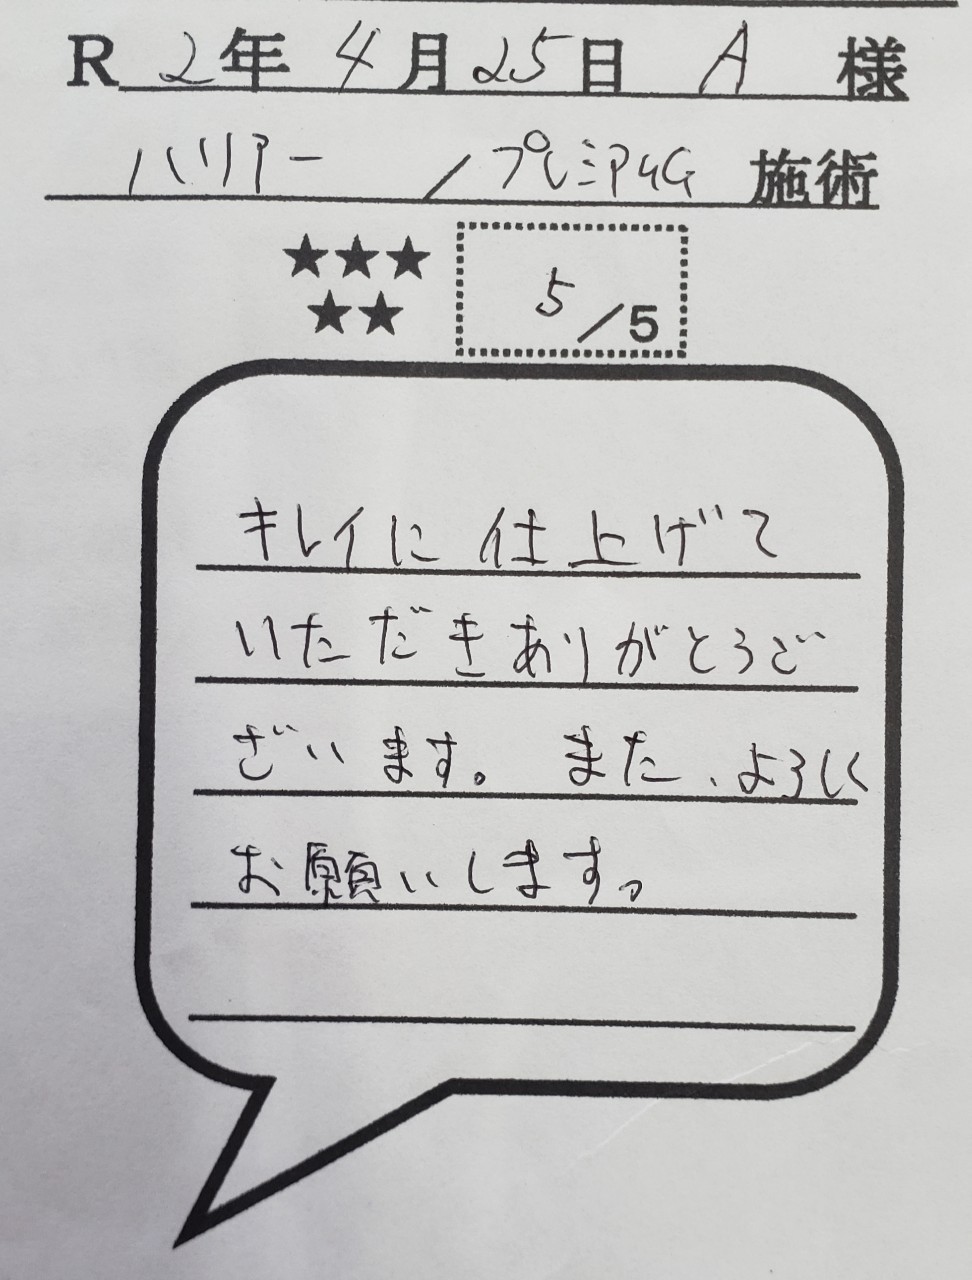 R 2年 4月25日 A 様
ハリアー / プレミアムG 施術
★★★
★★
5/5
キレイに仕上げて
いただきありがとうご
ざいます。また、よろしく
お願いします。